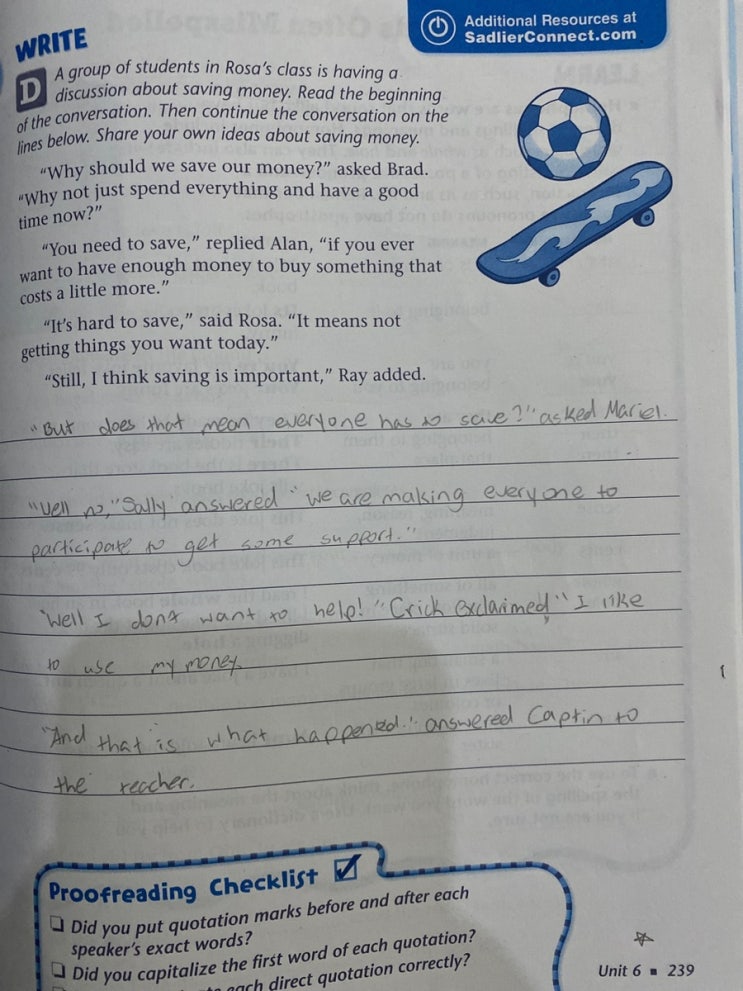 Additional Resources at
SadlierConnect.com
WRITE
D A group of students in Rosa's class is having a
discussion about saving money. Read the beginning
of the conversation. Then continue the conversation on the
lines below. Share your own ideas about saving money.
"Why should we save our money?" asked Brad.
"Why not just spend everything and have a good
time now?"
"You need to save," replied Alan, "if you ever
want to have enough money to buy something that
costs a little more."
"It's hard to save," said Rosa. "It means not
getting things you want today."
"Still, I think saving is important," Ray added.
"But does that mean everyone has to save?" asked Mariel.
"Well no," Sally answered "we are making everyone to
participate to get some support."
"Well I dont want to help!" Crick exclaimed" I like
to use my money.
"And that is what happened." answered Captin to
the teacher.
Proofreading Checklist
Did you put quotation marks before and after each
speaker's exact words?
Did you capitalize the first word of each quotation?
each direct quotation correctly?
Unit 6 ▪ 239